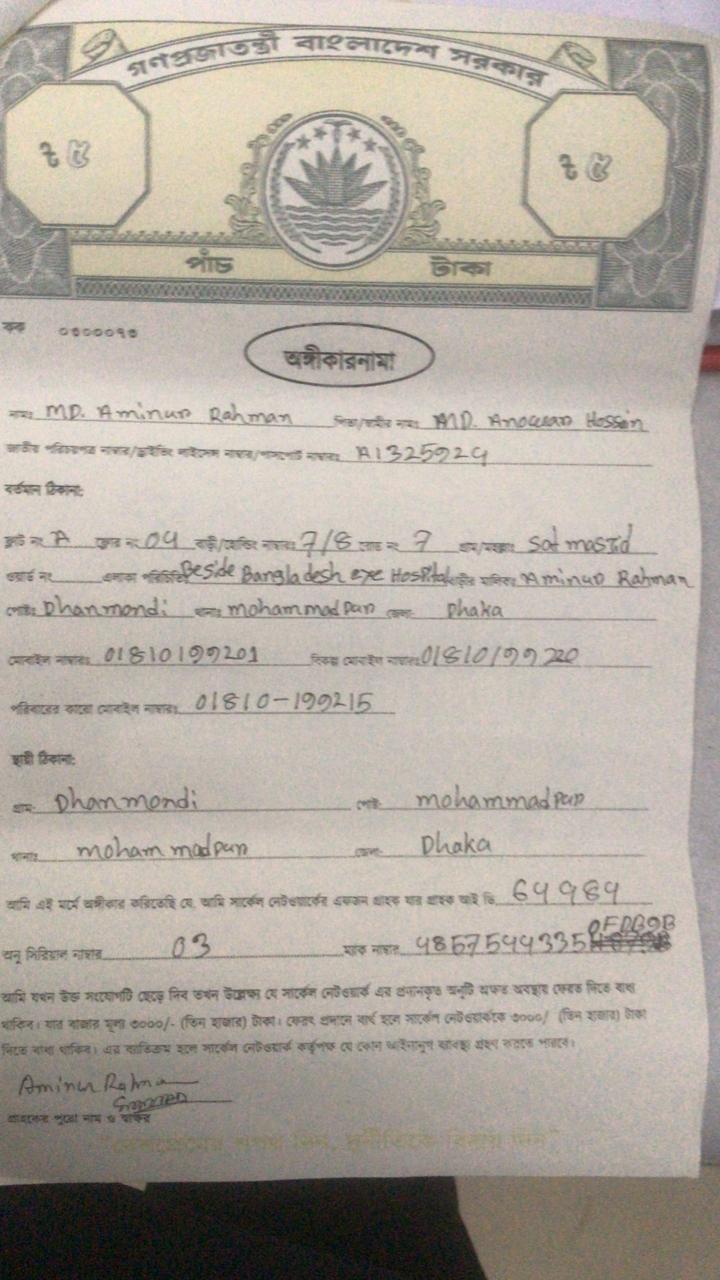 গণপ্রজাতন্ত্রী বাংলাদেশ সরকার
৳ ৫ ৳ ৫
পাঁচ টাকা
কক ০৩০০০৭৩
অঙ্গীকারনামা
নামঃ MD. Aminur Rahman পিতা/স্বামীর নামঃ MD. Anowar Hossein
জাতীয় পরিচয়পত্র নাম্বার/ড্রাইভিং লাইসেন্স নাম্বার/পাসপোর্ট নাম্বারঃ A1325924
বর্তমান ঠিকানা:
ফ্লাট নং A ফ্লোর নং 04 বাড়ী/হোল্ডিং নাম্বারঃ 7/8 রোড নং 7 গ্রাম/মহল্লাঃ Sat masjid
ওয়ার্ড নং এলাকা পরিচিতিঃ Beside Bangladesh eye Hospital বাড়ীর মালিকঃ Aminur Rahman
পোষ্টঃ Dhanmondi থানাঃ mohammadpur জেলাঃ Dhaka
মোবাইল নাম্বারঃ 01810199201 বিকল্প মোবাইল নাম্বারঃ 01810199220
পরিবারের কারো মোবাইল নাম্বারঃ 01810-199215
স্থায়ী ঠিকানা:
গ্রামঃ Dhanmondi পোষ্টঃ mohammadpur
থানাঃ mohammadpur জেলাঃ Dhaka
আমি এই মর্মে অঙ্গীকার করিতেছি যে, আমি সার্কেল নেটওয়ার্কের একজন গ্রাহক যার গ্রাহক আই ডি 64984
অনু সিরিয়াল নাম্বার 03 ম্যাক নাম্বার 48575443350FDB9B
আমি যখন উক্ত সংযোগটি ছেড়ে দিব তখন উল্লেক্ষ্য যে সার্কেল নেটওয়ার্ক এর প্রদানকৃত অনুটি অক্ষত অবস্থায় ফেরত দিতে বাধ্য
থাকিব। যার বাজার মূল্য ৩০০০/- (তিন হাজার) টাকা। ফেরৎ প্রদানে ব্যর্থ হলে সার্কেল নেটওয়ার্ককে ৩০০০/ (তিন হাজার) টাকা
দিতে বাধ্য থাকিব। এর ব্যতিক্রম হলে সার্কেল নেটওয়ার্ক কর্তৃপক্ষ যে কোন আইনানুগ ব্যবস্থা গ্রহণ করতে পারবে।
Aminur Rahma
গ্রাহকের পুরো নাম ও স্বাক্ষর